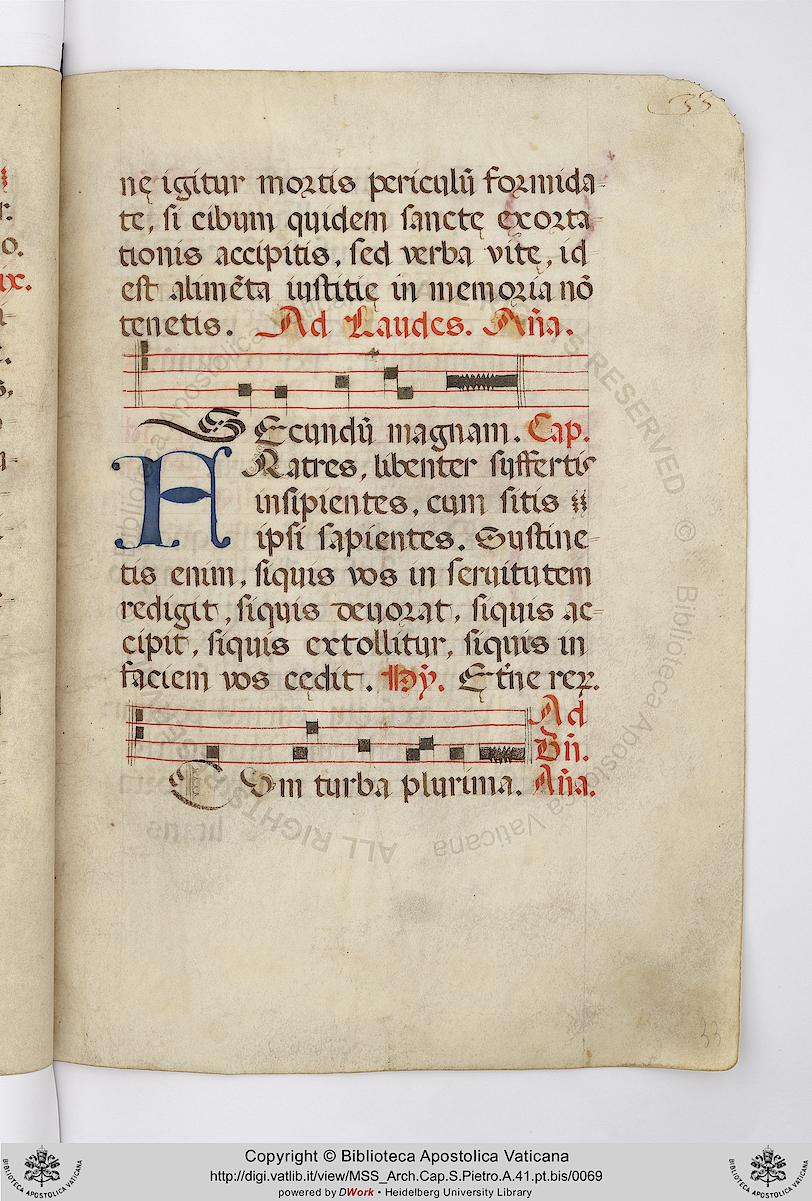 33
nę igitur mortis periculū formida-
te, si cibum quidem sanctę exorta-
tionis accipitis, sed verba vitę, id
est alimēta iustitię in memoria nō
tenetis. Ad Laudes. Aña.
SEcundū magnam. Cap.
FRatres, libenter suffertis
insipientes, cum sitis
ipsi sapientes. Sustine-
tis enim, siquis vos in seruitutem
redigit, siquis deuorat, siquis ac-
cipit, siquis extollitur, siquis in
faciem vos cędit. Hy. Etne rex.
Ad
Bñ.
CVm turba plurima. Aña.
33
ALL RIGHTS RESERVED © Biblioteca Apostolica Vaticana
BIBLIOTECA APOSTOLICA VATICANA
Copyright © Biblioteca Apostolica Vaticana
http://digi.vatlib.it/view/MSS_Arch.Cap.S.Pietro.A.41.pt.bis/0069
powered by DWork • Heidelberg University Library
BIBLIOTECA APOSTOLICA VATICANA